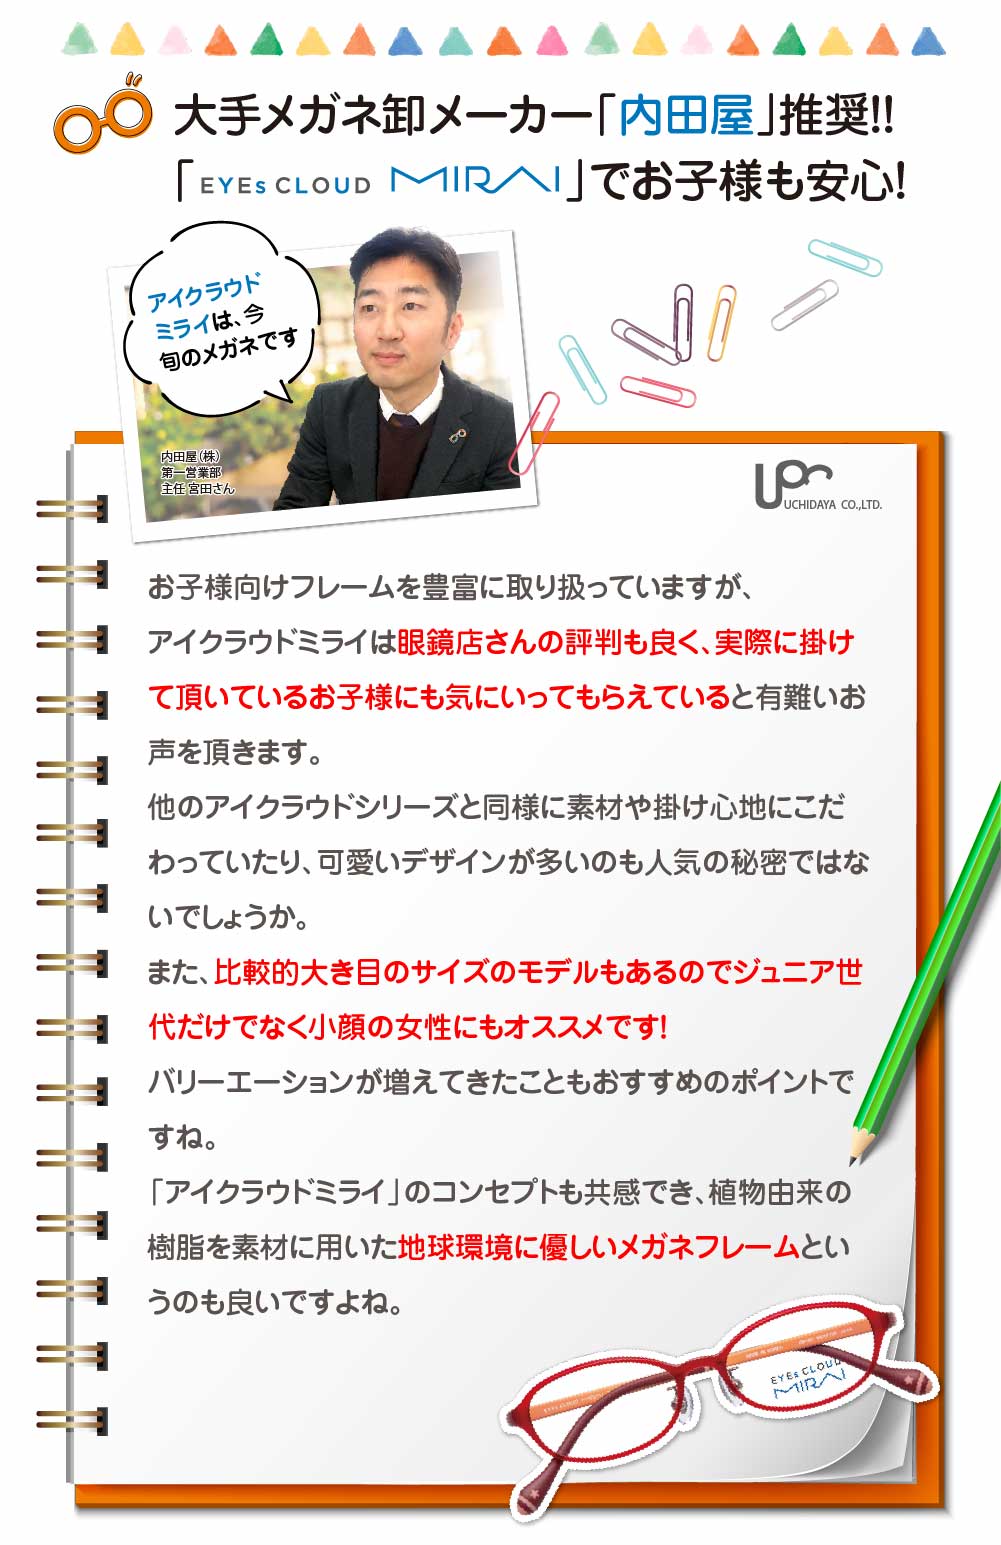 大手メガネ卸メーカー「内田屋」推奨!!
「EYEs CLOUD MIRAI」でお子様も安心!
アイクラウド
ミライは、今
旬のメガネです
内田屋(株)
第一営業部
主任 宮田さん
UCHIDAYA CO.,LTD.
お子様向けフレームを豊富に取り扱っていますが、
アイクラウドミライは眼鏡店さんの評判も良く、実際に掛け
て頂いているお子様にも気にいってもらえていると有難いお
声を頂きます。
他のアイクラウドシリーズと同様に素材や掛け心地にこだ
わっていたり、可愛いデザインが多いのも人気の秘密ではな
いでしょうか。
また、比較的大き目のサイズのモデルもあるのでジュニア世
代だけでなく小顔の女性にもオススメです!
バリーエーションが増えてきたこともおすすめのポイントで
すね。
「アイクラウドミライ」のコンセプトも共感でき、植物由来の
樹脂を素材に用いた地球環境に優しいメガネフレームとい
うのも良いですよね。
EYEs CLOUD
MIRAI
EYEs CLOUD